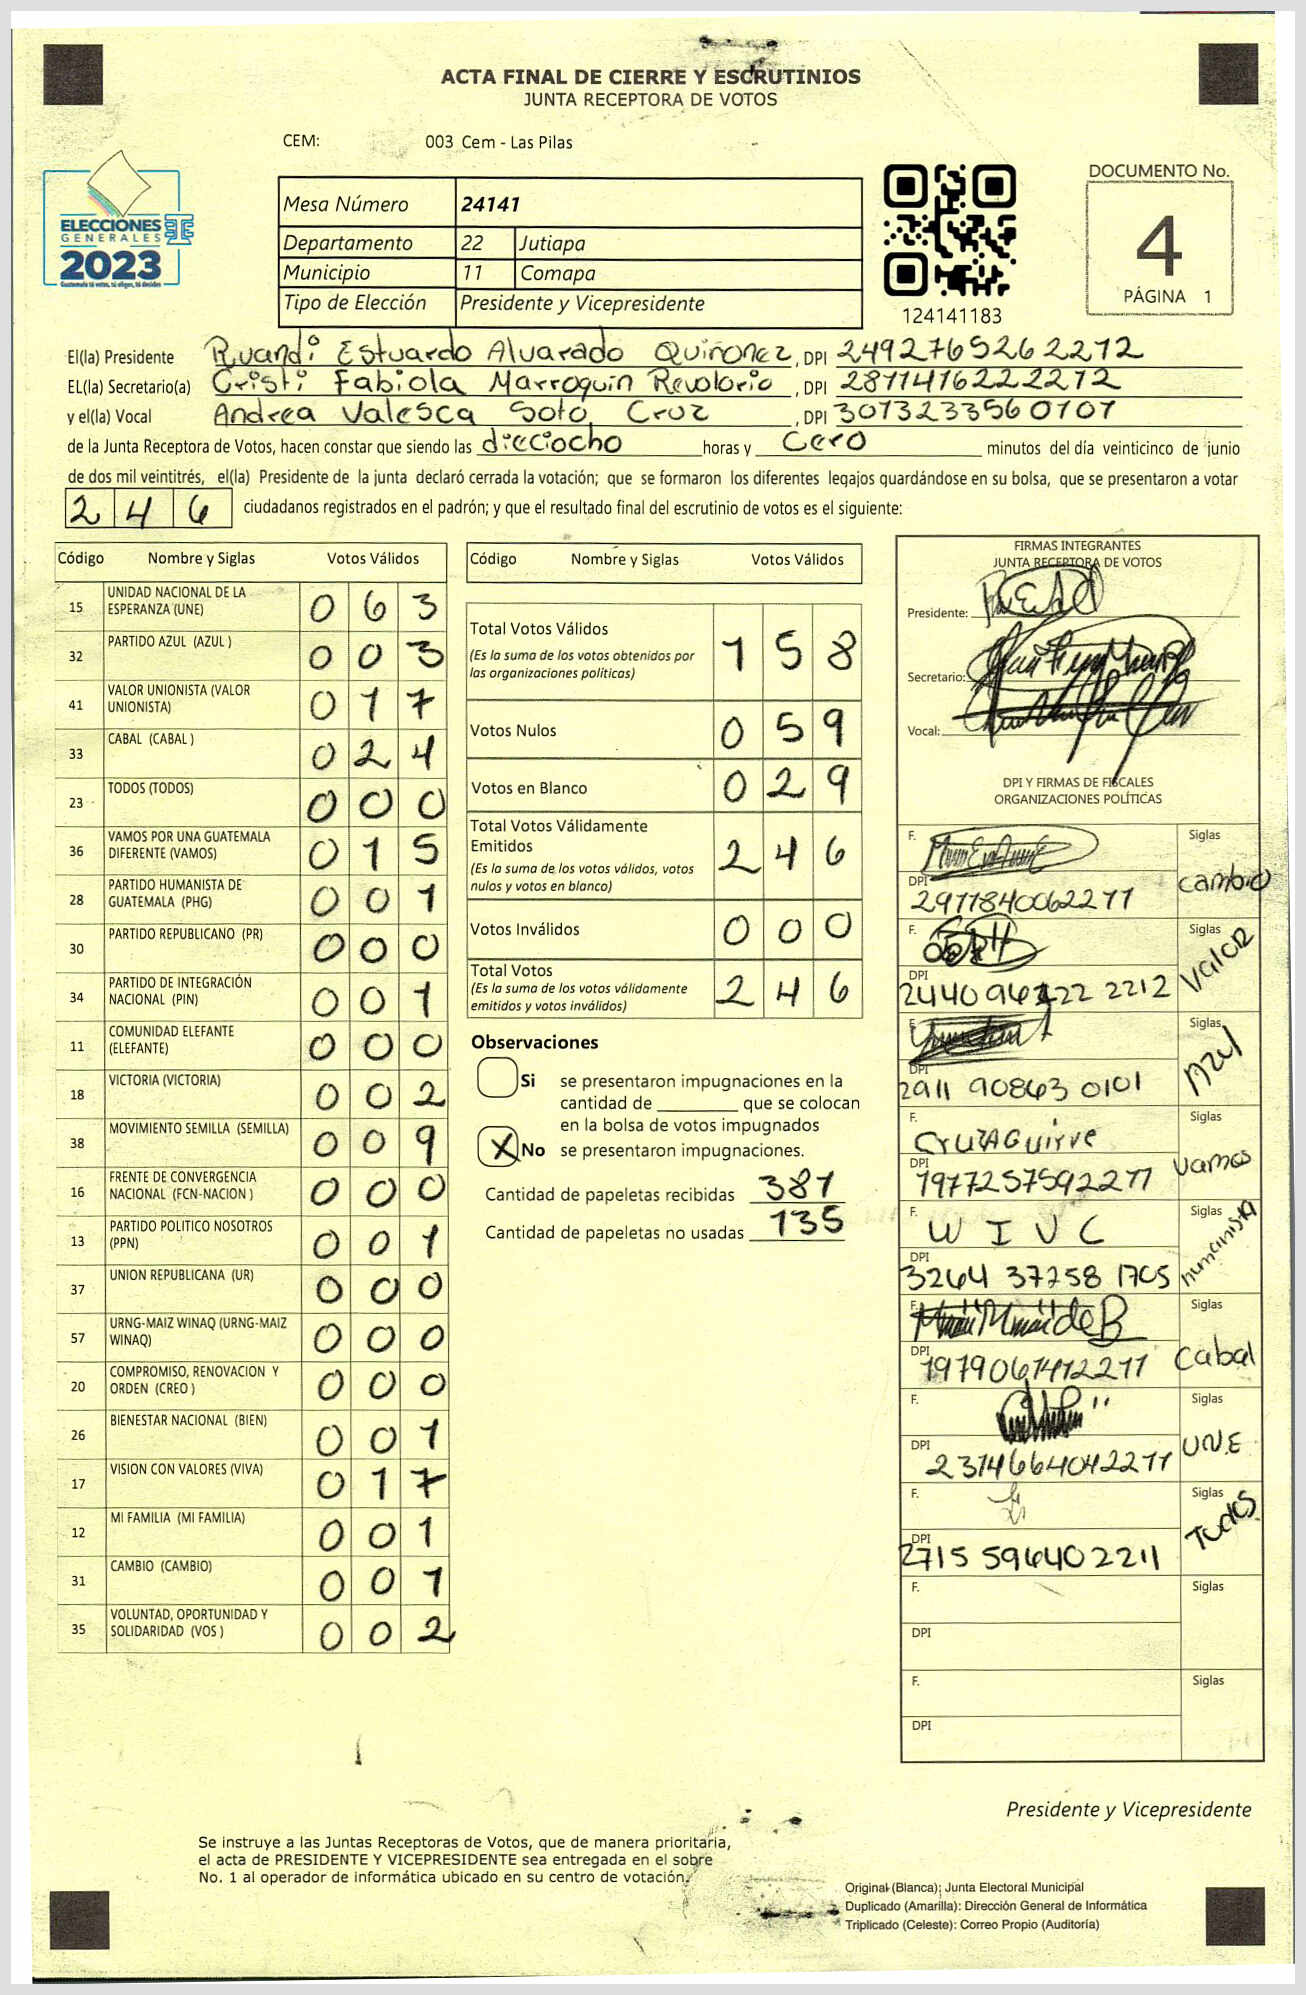 ACTA FINAL DE CIERRE Y ESCRUTINIOS
JUNTA RECEPTORA DE VOTOS
CEM: 003 Cem - Las Pilas
ELECCIONES
GENERALES
2023
Guatemala tú votas, tú eliges, tú decides
Mesa Número 24141
Departamento 22 Jutiapa
Municipio 11 Comapa
Tipo de Elección Presidente y Vicepresidente
124141183
DOCUMENTO No.
4
PÁGINA 1
El(la) Presidente Ruandi Estuardo Alvarado Quiñonez, DPI 2492765262212
EL(la) Secretario(a) Cristi Fabiola Marroquin Revolorio, DPI 2871416222212
y el(la) Vocal Andrea Valesca Soto Cruz, DPI 3073233560101
de la Junta Receptora de Votos, hacen constar que siendo las dieciocho horas y cero minutos del día veinticinco de junio
de dos mil veintitrés, el(la) Presidente de la junta declaró cerrada la votación; que se formaron los diferentes legajos guardándose en su bolsa, que se presentaron a votar
246 ciudadanos registrados en el padrón; y que el resultado final del escrutinio de votos es el siguiente:
Código Nombre y Siglas Votos Válidos
15 UNIDAD NACIONAL DE LA ESPERANZA (UNE) 063
32 PARTIDO AZUL (AZUL ) 003
41 VALOR UNIONISTA (VALOR UNIONISTA) 017
33 CABAL (CABAL ) 024
23 TODOS (TODOS) 000
36 VAMOS POR UNA GUATEMALA DIFERENTE (VAMOS) 015
28 PARTIDO HUMANISTA DE GUATEMALA (PHG) 001
30 PARTIDO REPUBLICANO (PR) 000
34 PARTIDO DE INTEGRACIÓN NACIONAL (PIN) 001
11 COMUNIDAD ELEFANTE (ELEFANTE) 000
18 VICTORIA (VICTORIA) 002
38 MOVIMIENTO SEMILLA (SEMILLA) 009
16 FRENTE DE CONVERGENCIA NACIONAL (FCN-NACION ) 000
13 PARTIDO POLITICO NOSOTROS (PPN) 001
37 UNION REPUBLICANA (UR) 000
57 URNG-MAIZ WINAQ (URNG-MAIZ WINAQ) 000
20 COMPROMISO, RENOVACION Y ORDEN (CREO ) 000
26 BIENESTAR NACIONAL (BIEN) 001
17 VISION CON VALORES (VIVA) 017
12 MI FAMILIA (MI FAMILIA) 001
31 CAMBIO (CAMBIO) 001
35 VOLUNTAD, OPORTUNIDAD Y SOLIDARIDAD (VOS ) 002
Código Nombre y Siglas Votos Válidos
Total Votos Válidos 158
(Es la suma de los votos obtenidos por
las organizaciones políticas)
Votos Nulos 059
Votos en Blanco 029
Total Votos Válidamente
Emitidos 246
(Es la suma de los votos válidos, votos
nulos y votos en blanco)
Votos Inválidos 000
Total Votos 246
(Es la suma de los votos válidamente
emitidos y votos inválidos)
Observaciones
Si se presentaron impugnaciones en la
cantidad de ________ que se colocan
en la bolsa de votos impugnados
X No se presentaron impugnaciones.
Cantidad de papeletas recibidas 381
Cantidad de papeletas no usadas 135
FIRMAS INTEGRANTES
JUNTA RECEPTORA DE VOTOS
Presidente:
Secretario:
Vocal:
DPI Y FIRMAS DE FISCALES
ORGANIZACIONES POLÍTICAS
F. Siglas
DPI 2977840062211 cambio
F. Siglas
DPI 2212 Valor
F. Siglas
DPI 2911 90863 0101 Azul
F. CruzAguirre Siglas
DPI 1977257592211 vamos
F. W I V C Siglas
DPI 3264 37258 1705 humanista
F. Siglas
DPI Cabal
F. Siglas
DPI 2374664042211 UNE
F. Siglas
DPI 2715 596402211 Todos
F. Siglas
DPI
F. Siglas
DPI
Presidente y Vicepresidente
Se instruye a las Juntas Receptoras de Votos, que de manera prioritaria,
el acta de PRESIDENTE Y VICEPRESIDENTE sea entregada en el sobre
No. 1 al operador de informática ubicado en su centro de votación.
Original (Blanca): Junta Electoral Municipal
Duplicado (Amarilla): Dirección General de Informática
Triplicado (Celeste): Correo Propio (Auditoría)